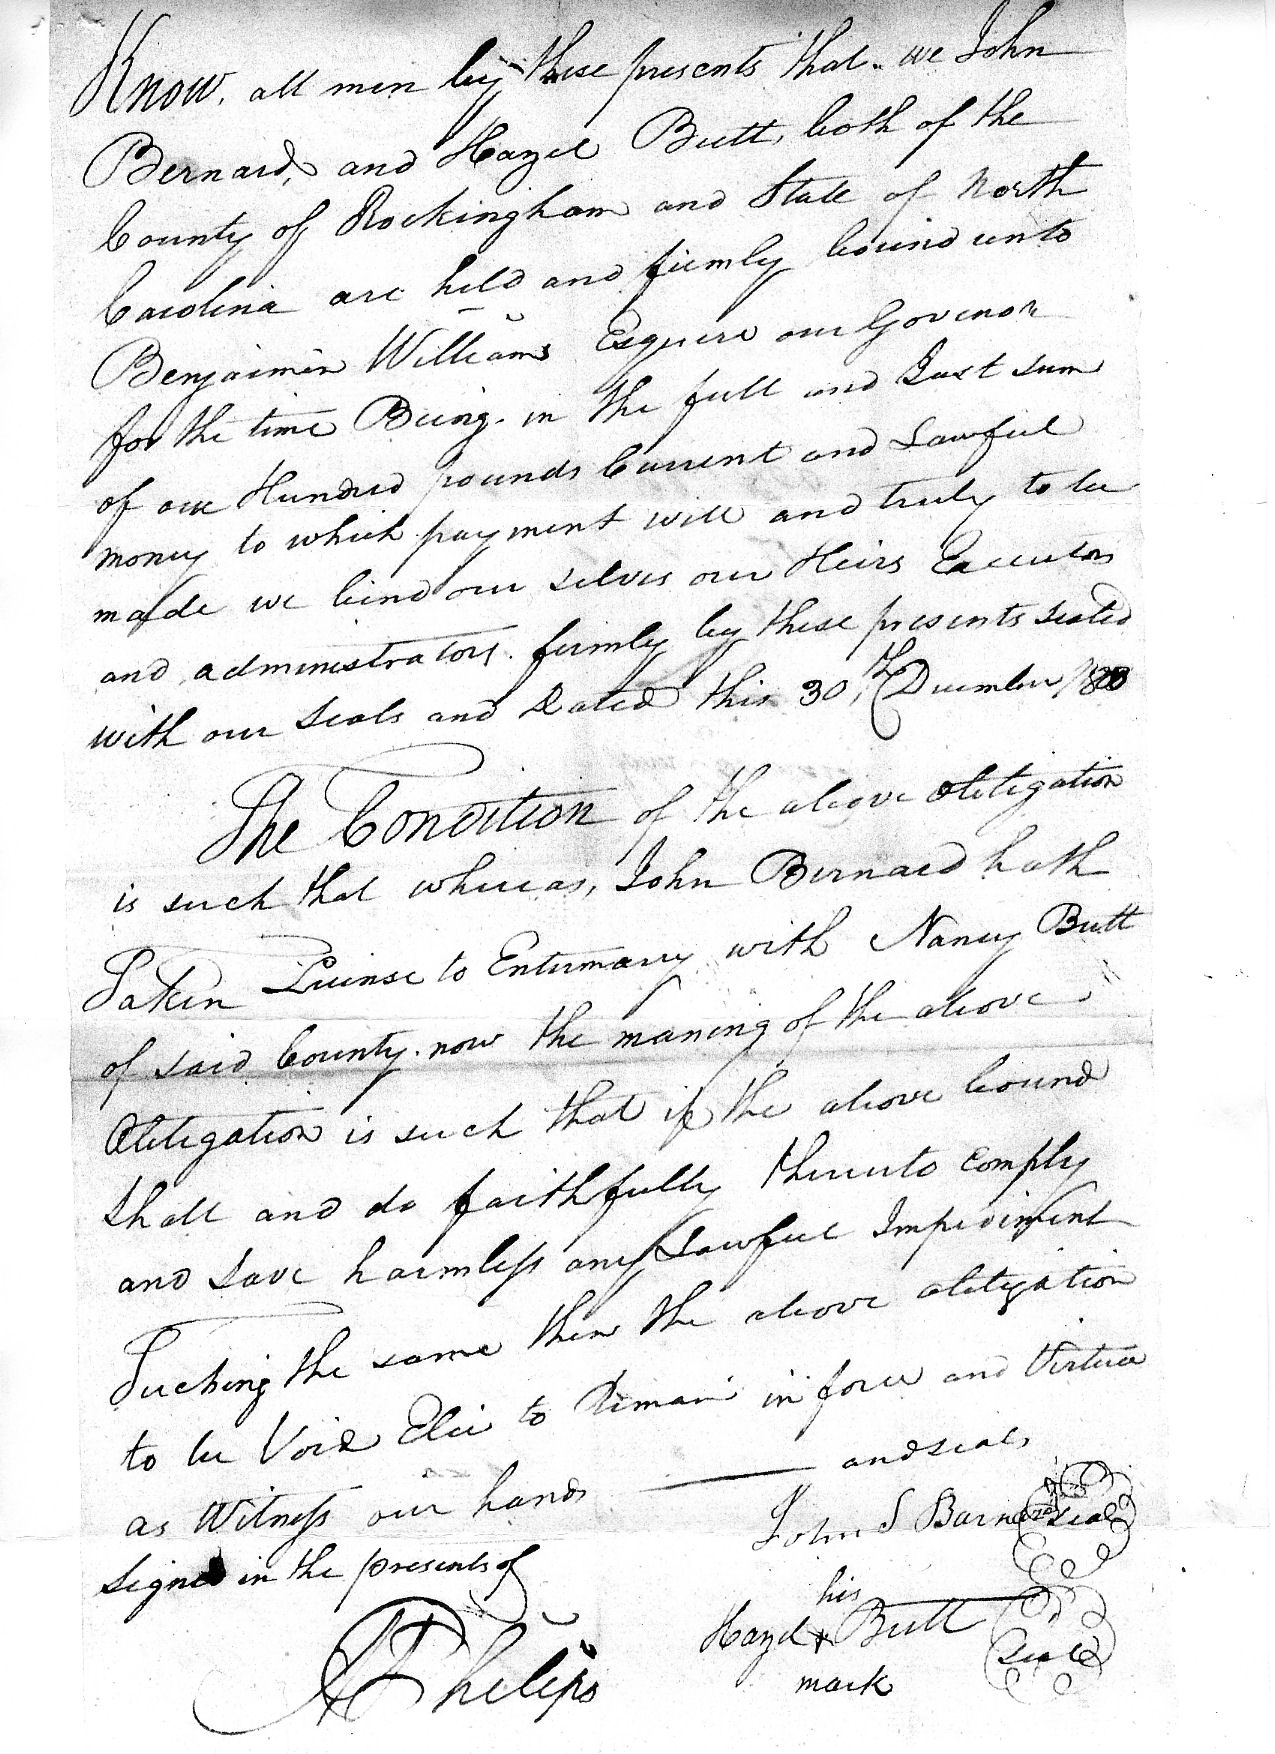 Know. all men by these presents that we John
Bernard, and Hazel Butt, both of the
County of Rockingham and State of North
Carolina are held and firmly bound unto
Benjaimin Williams Esquire our Govenor
for the time Being. in the full and Just sum
of one Hundred pounds Current and Lawful
money to which payment will and truly to be
made we bind our selves our Heirs Executors
and administrators. firmly by these presents seated
with our seals and Dated this 30th December
The Condition of the above obligation
is such that whereas, John Bernard hath
Taken Licinse to Entermarry with Nancy Butt
of said County. now the maning of the above
Obligation is such that if the above bound
shall and do faithfully thereto comply
and save harmless any Lawful Impediment
Tuching the same then the above obligation
to be Void Else to Remain in force and Virtue
as Witness our hands and seals
Signed in the presents of
John S Barnard Seal
his
Hazel + Butt Seal
mark
A Phelips